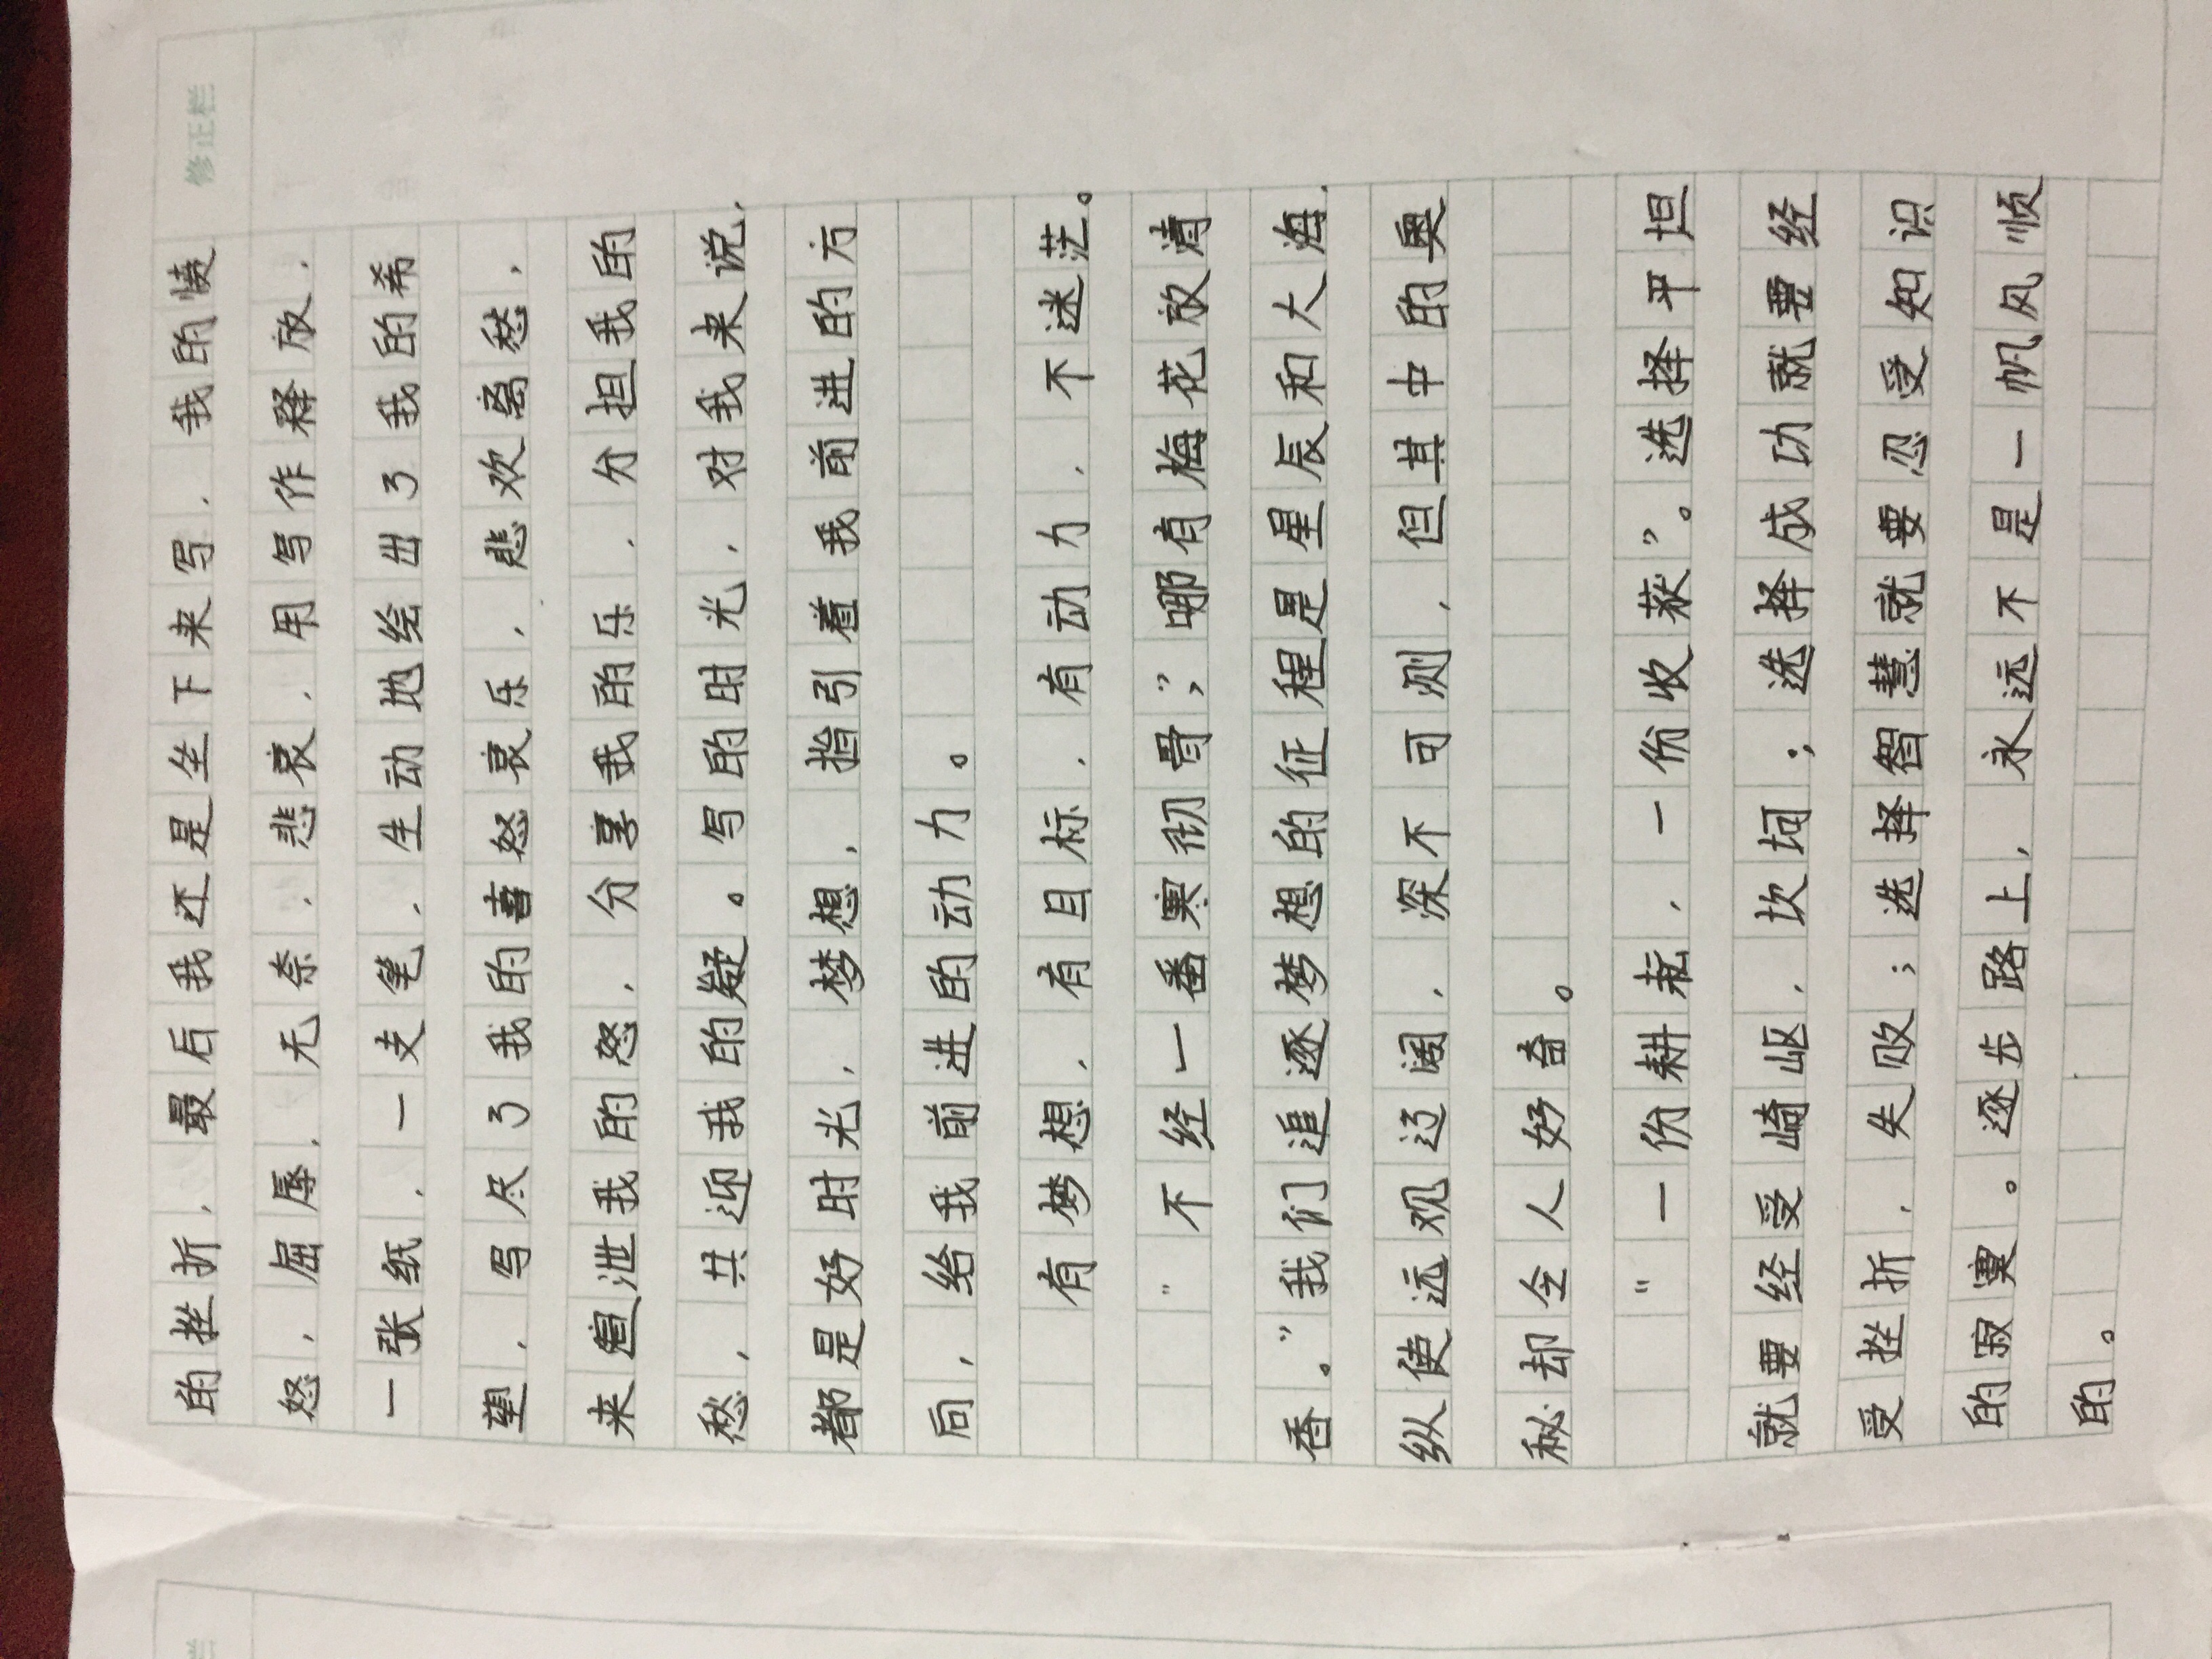 修正栏
的挫折，最后我还是坐下来写，我的愤
怒，屈辱，无奈，悲哀，用写作释放，
一张纸，一支笔，生动地绘出了我的希
望，写尽了我的喜怒哀乐，悲欢离愁，
来宣泄我的怒，分享我的乐，分担我的
愁，共迎我的疑。写的时光，对我来说，
都是好时光，梦想，指引着我前进的方
向，给我前进的动力。
有梦想，有目标，有动力，不迷茫。
“不经一番寒彻骨，”哪有梅花放清
香。”我们追逐梦想的征程是星辰和大海，
纵使远观辽阔，深不可测，但其中的奥
秘却令人好奇。
“一份耕耘，一份收获”。选择平坦
就要经受崎岖，坎坷；选择成功就要经
受挫折，失败；选择智慧就要忍受知识
的寂寞。逐步路上，永远不是一帆风顺
的。